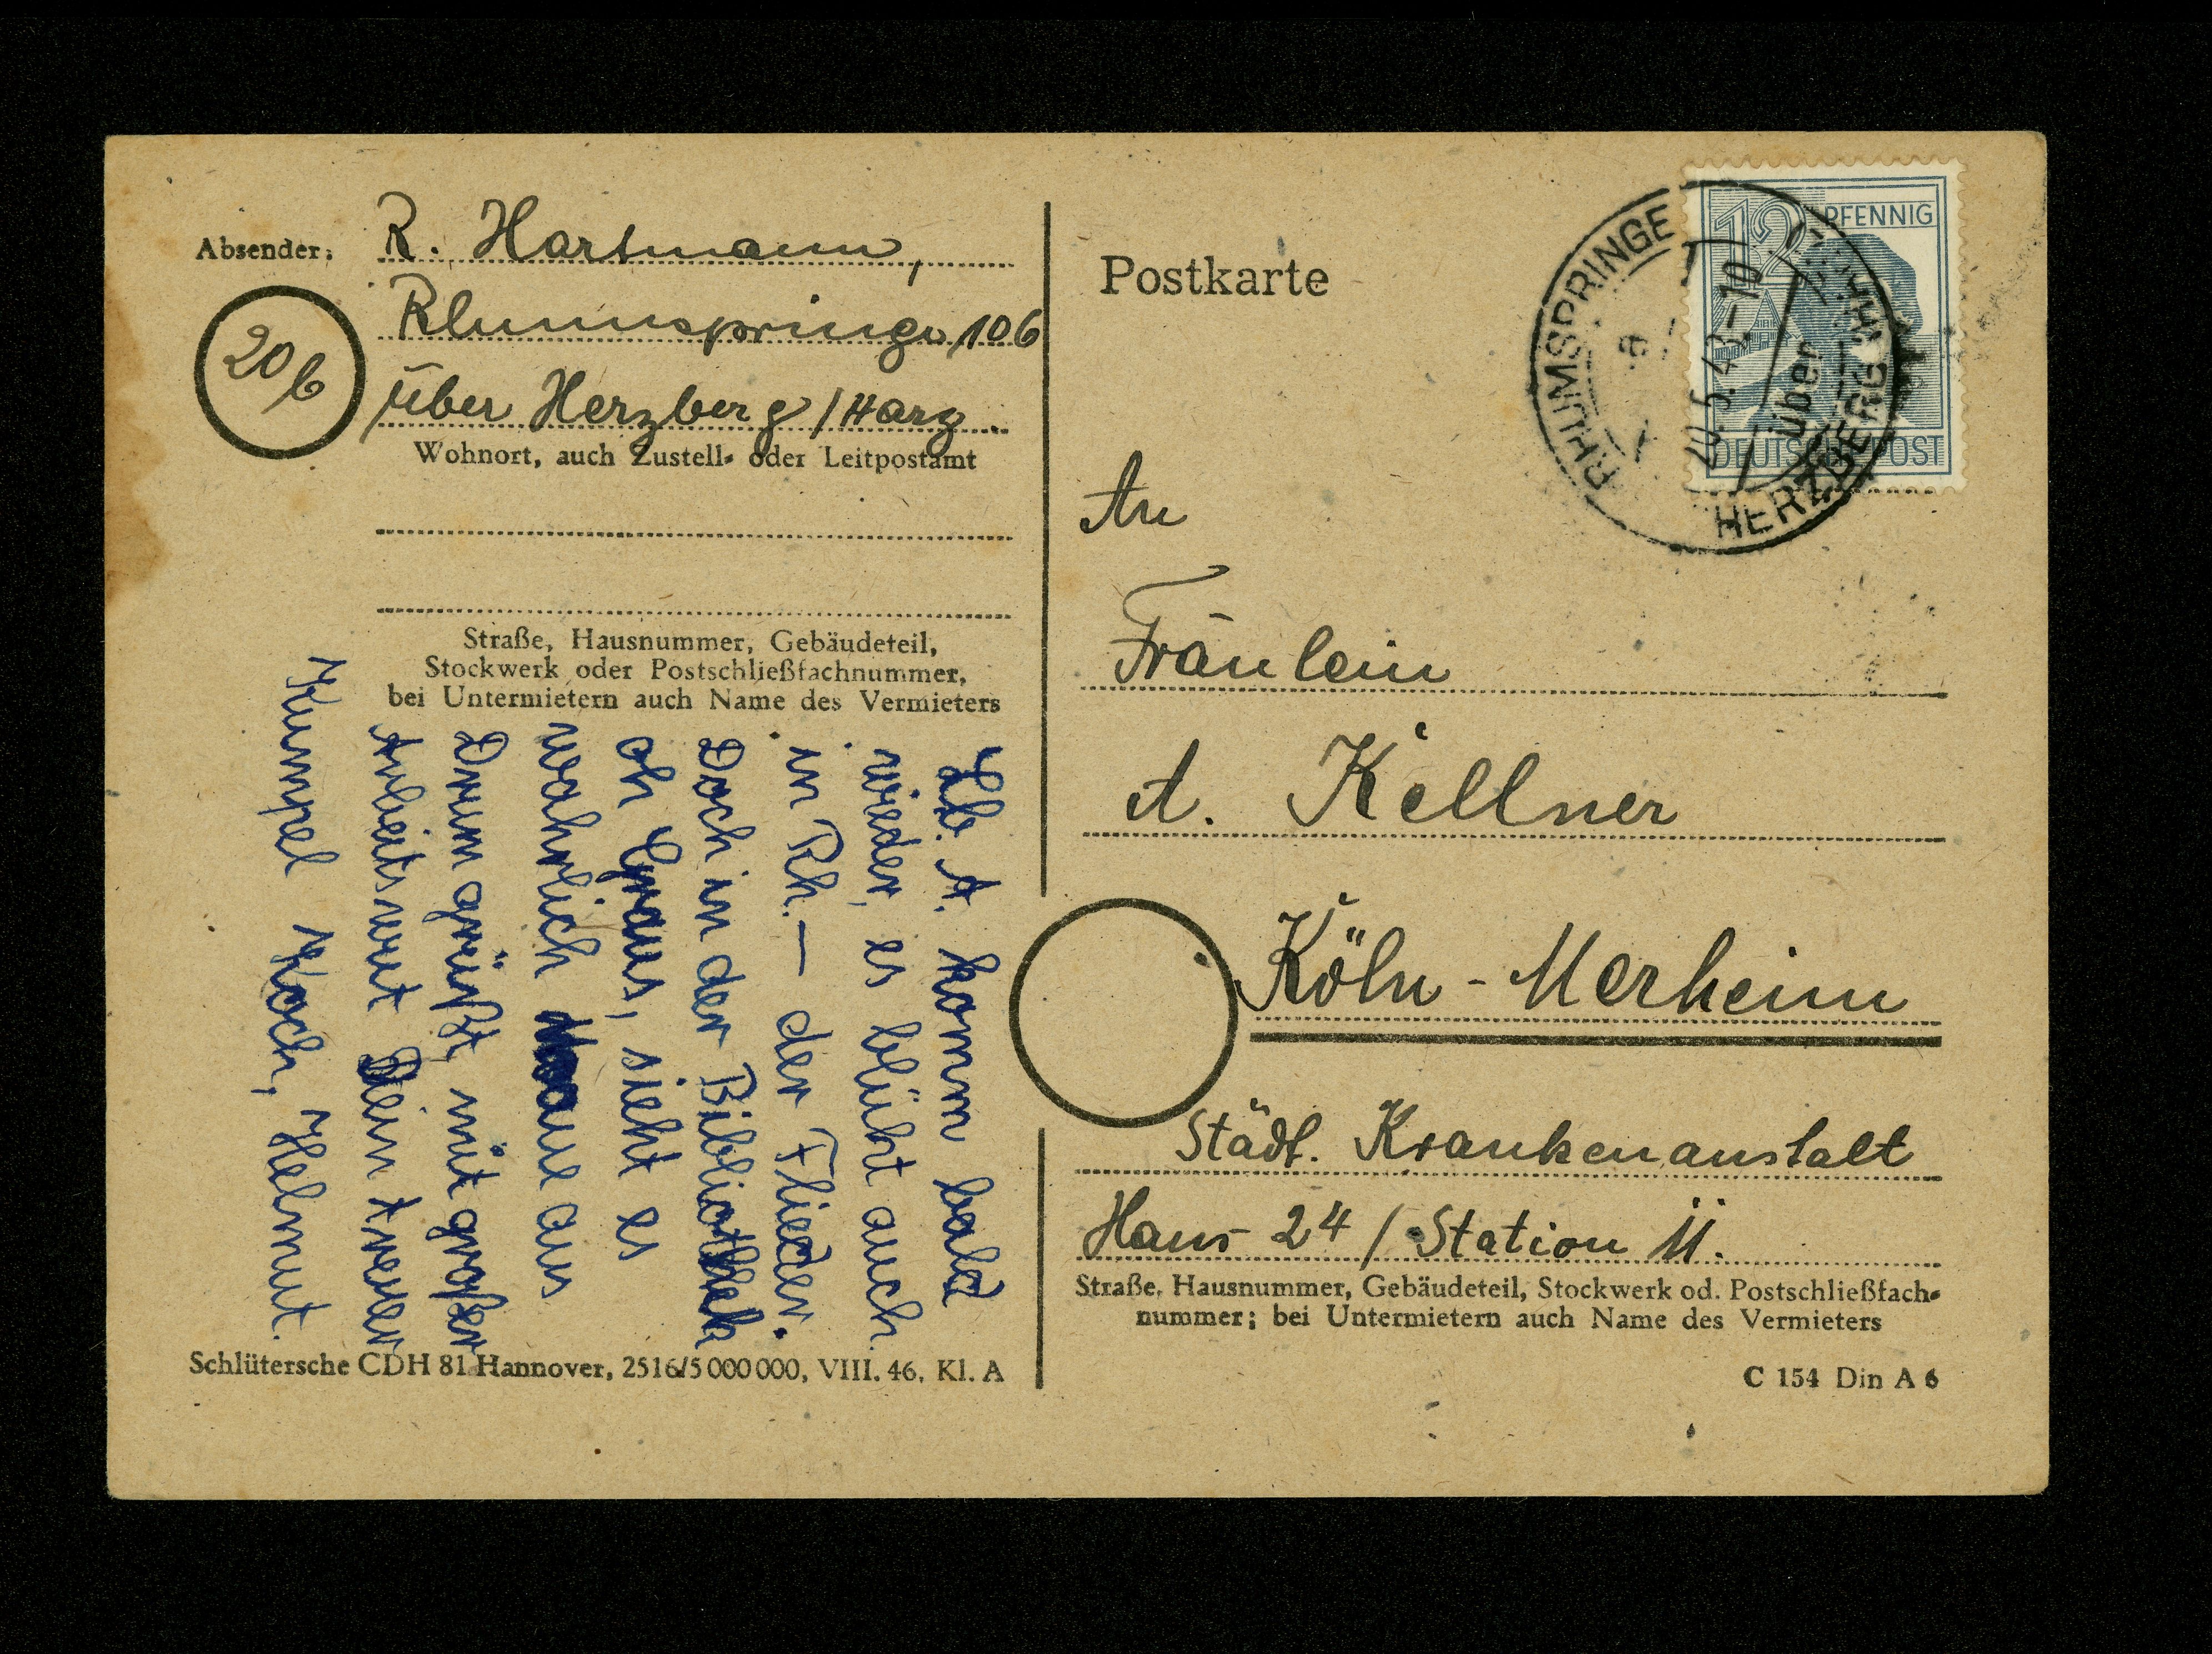 Absender:
R. Hartmann,
Rhumspringe 106
über Herzberg / Harz.
20
b
Wohnort, auch Zustell- oder Leitpostamt
Straße, Hausnummer, Gebäudeteil,
Stockwerk oder Postschließfachnummer,
bei Untermietern auch Name des Vermieters
Lb. A. komm bald
wieder, es blüht auch
in Rh. — der Flieder.
Doch in der Bibliothek
oh Graus, sieht es
wahrlich aus
Drum grüßt, mit großer
Arbeitswut Dein treuer
Kumpel Koch, Helmut.
Schlütersche CDH 81 Hannover, 2516/5 000 000, VIII. 46, Kl. A
Postkarte
12 PFENNIG
DEUTSCHE POST
RHUMSPRINGE
a
20.5.48.-10
über
HERZBERG
An
Fräulein
A. Kellner
Köln-Merheim
Städt. Krankenanstalt
Haus 24 / Station II.
Straße, Hausnummer, Gebäudeteil, Stockwerk od. Postschließfach-
nummer; bei Untermietern auch Name des Vermieters
C 154 Din A 6